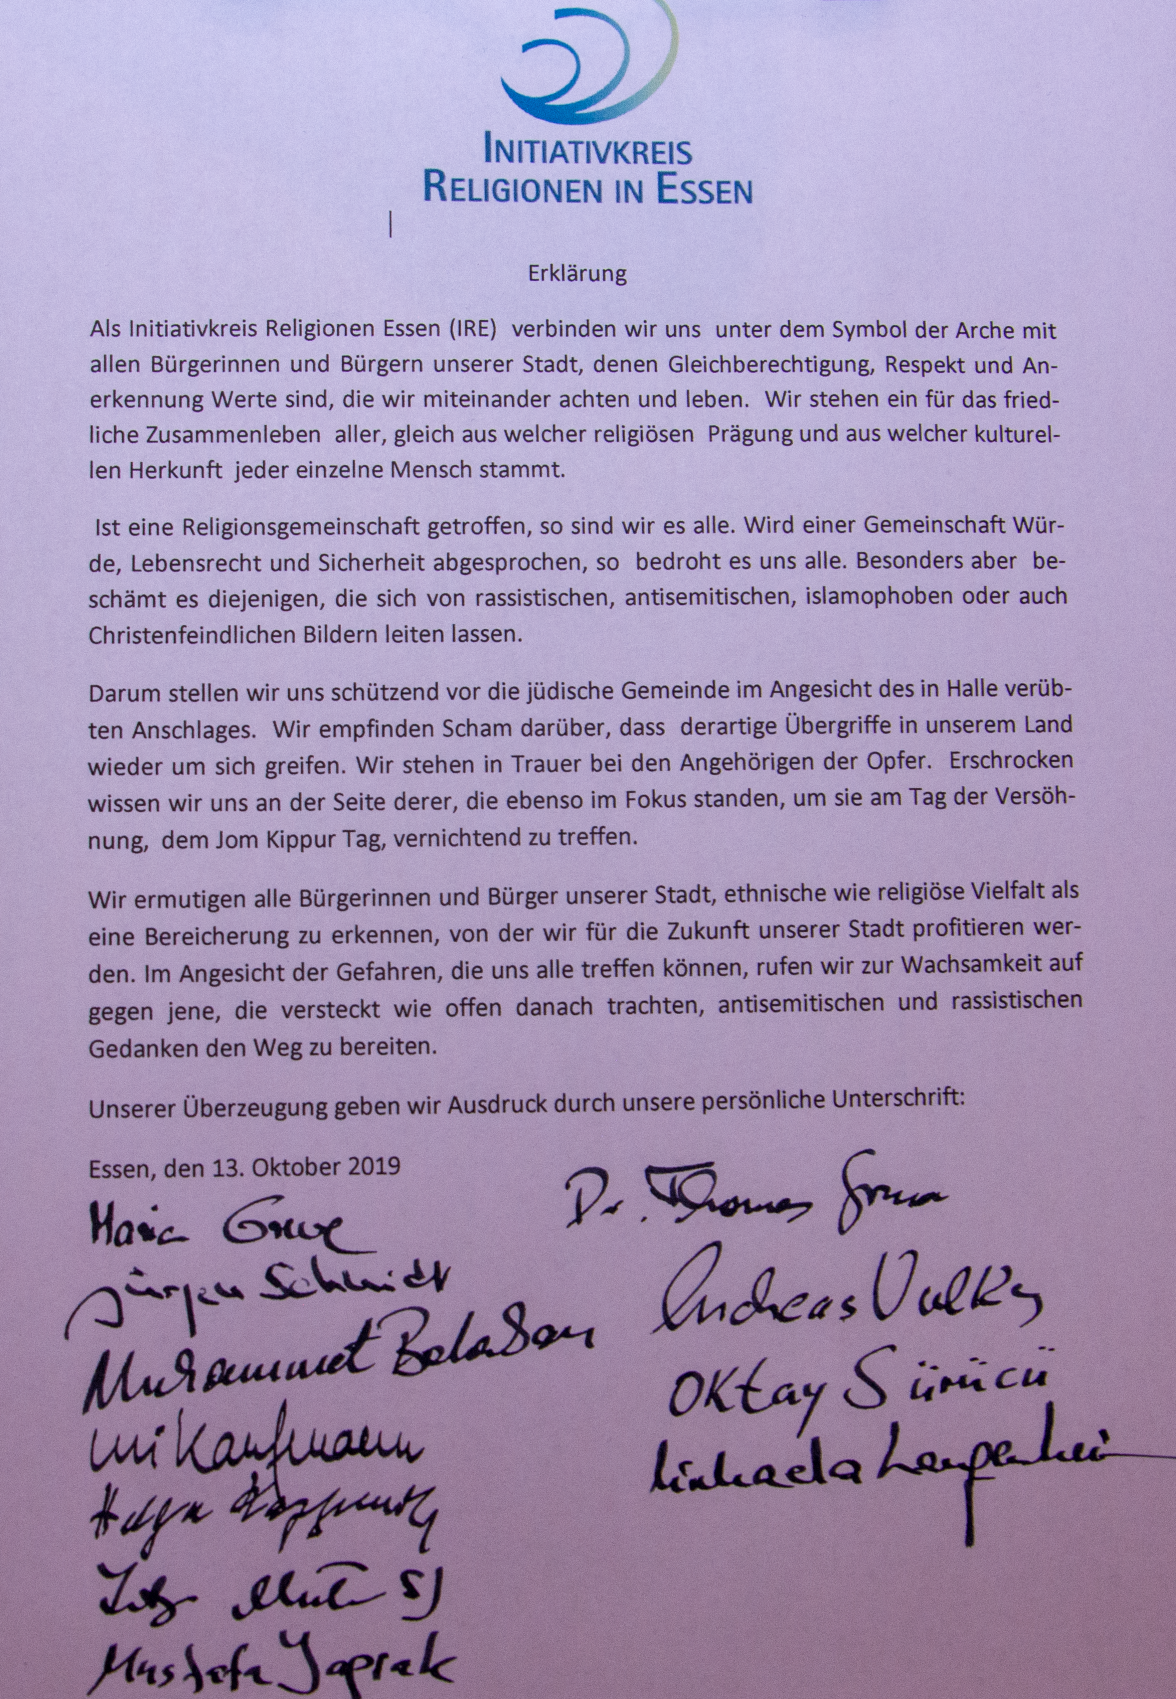 INITIATIVKREIS
RELIGIONEN IN ESSEN
Erklärung
Als Initiativkreis Religionen Essen (IRE) verbinden wir uns unter dem Symbol der Arche mit
allen Bürgerinnen und Bürgern unserer Stadt, denen Gleichberechtigung, Respekt und An-
erkennung Werte sind, die wir miteinander achten und leben. Wir stehen ein für das fried-
liche Zusammenleben aller, gleich aus welcher religiösen Prägung und aus welcher kulturel-
len Herkunft jeder einzelne Mensch stammt.
Ist eine Religionsgemeinschaft getroffen, so sind wir es alle. Wird einer Gemeinschaft Wür-
de, Lebensrecht und Sicherheit abgesprochen, so bedroht es uns alle. Besonders aber be-
schämt es diejenigen, die sich von rassistischen, antisemitischen, islamophoben oder auch
Christenfeindlichen Bildern leiten lassen.
Darum stellen wir uns schützend vor die jüdische Gemeinde im Angesicht des in Halle verüb-
ten Anschlages. Wir empfinden Scham darüber, dass derartige Übergriffe in unserem Land
wieder um sich greifen. Wir stehen in Trauer bei den Angehörigen der Opfer. Erschrocken
wissen wir uns an der Seite derer, die ebenso im Fokus standen, um sie am Tag der Versöh-
nung, dem Jom Kippur Tag, vernichtend zu treffen.
Wir ermutigen alle Bürgerinnen und Bürger unserer Stadt, ethnische wie religiöse Vielfalt als
eine Bereicherung zu erkennen, von der wir für die Zukunft unserer Stadt profitieren wer-
den. Im Angesicht der Gefahren, die uns alle treffen können, rufen wir zur Wachsamkeit auf
gegen jene, die versteckt wie offen danach trachten, antisemitischen und rassistischen
Gedanken den Weg zu bereiten.
Unserer Überzeugung geben wir Ausdruck durch unsere persönliche Unterschrift:
Essen, den 13. Oktober 2019
Maria
Dr. Thomas
Jürgen Schmidt
Andreas Volke
Muhammet Balaban
Oktay Sürücü
Uri Kaufmann
Michaela
Helga
SJ
Mustafa Yaprak